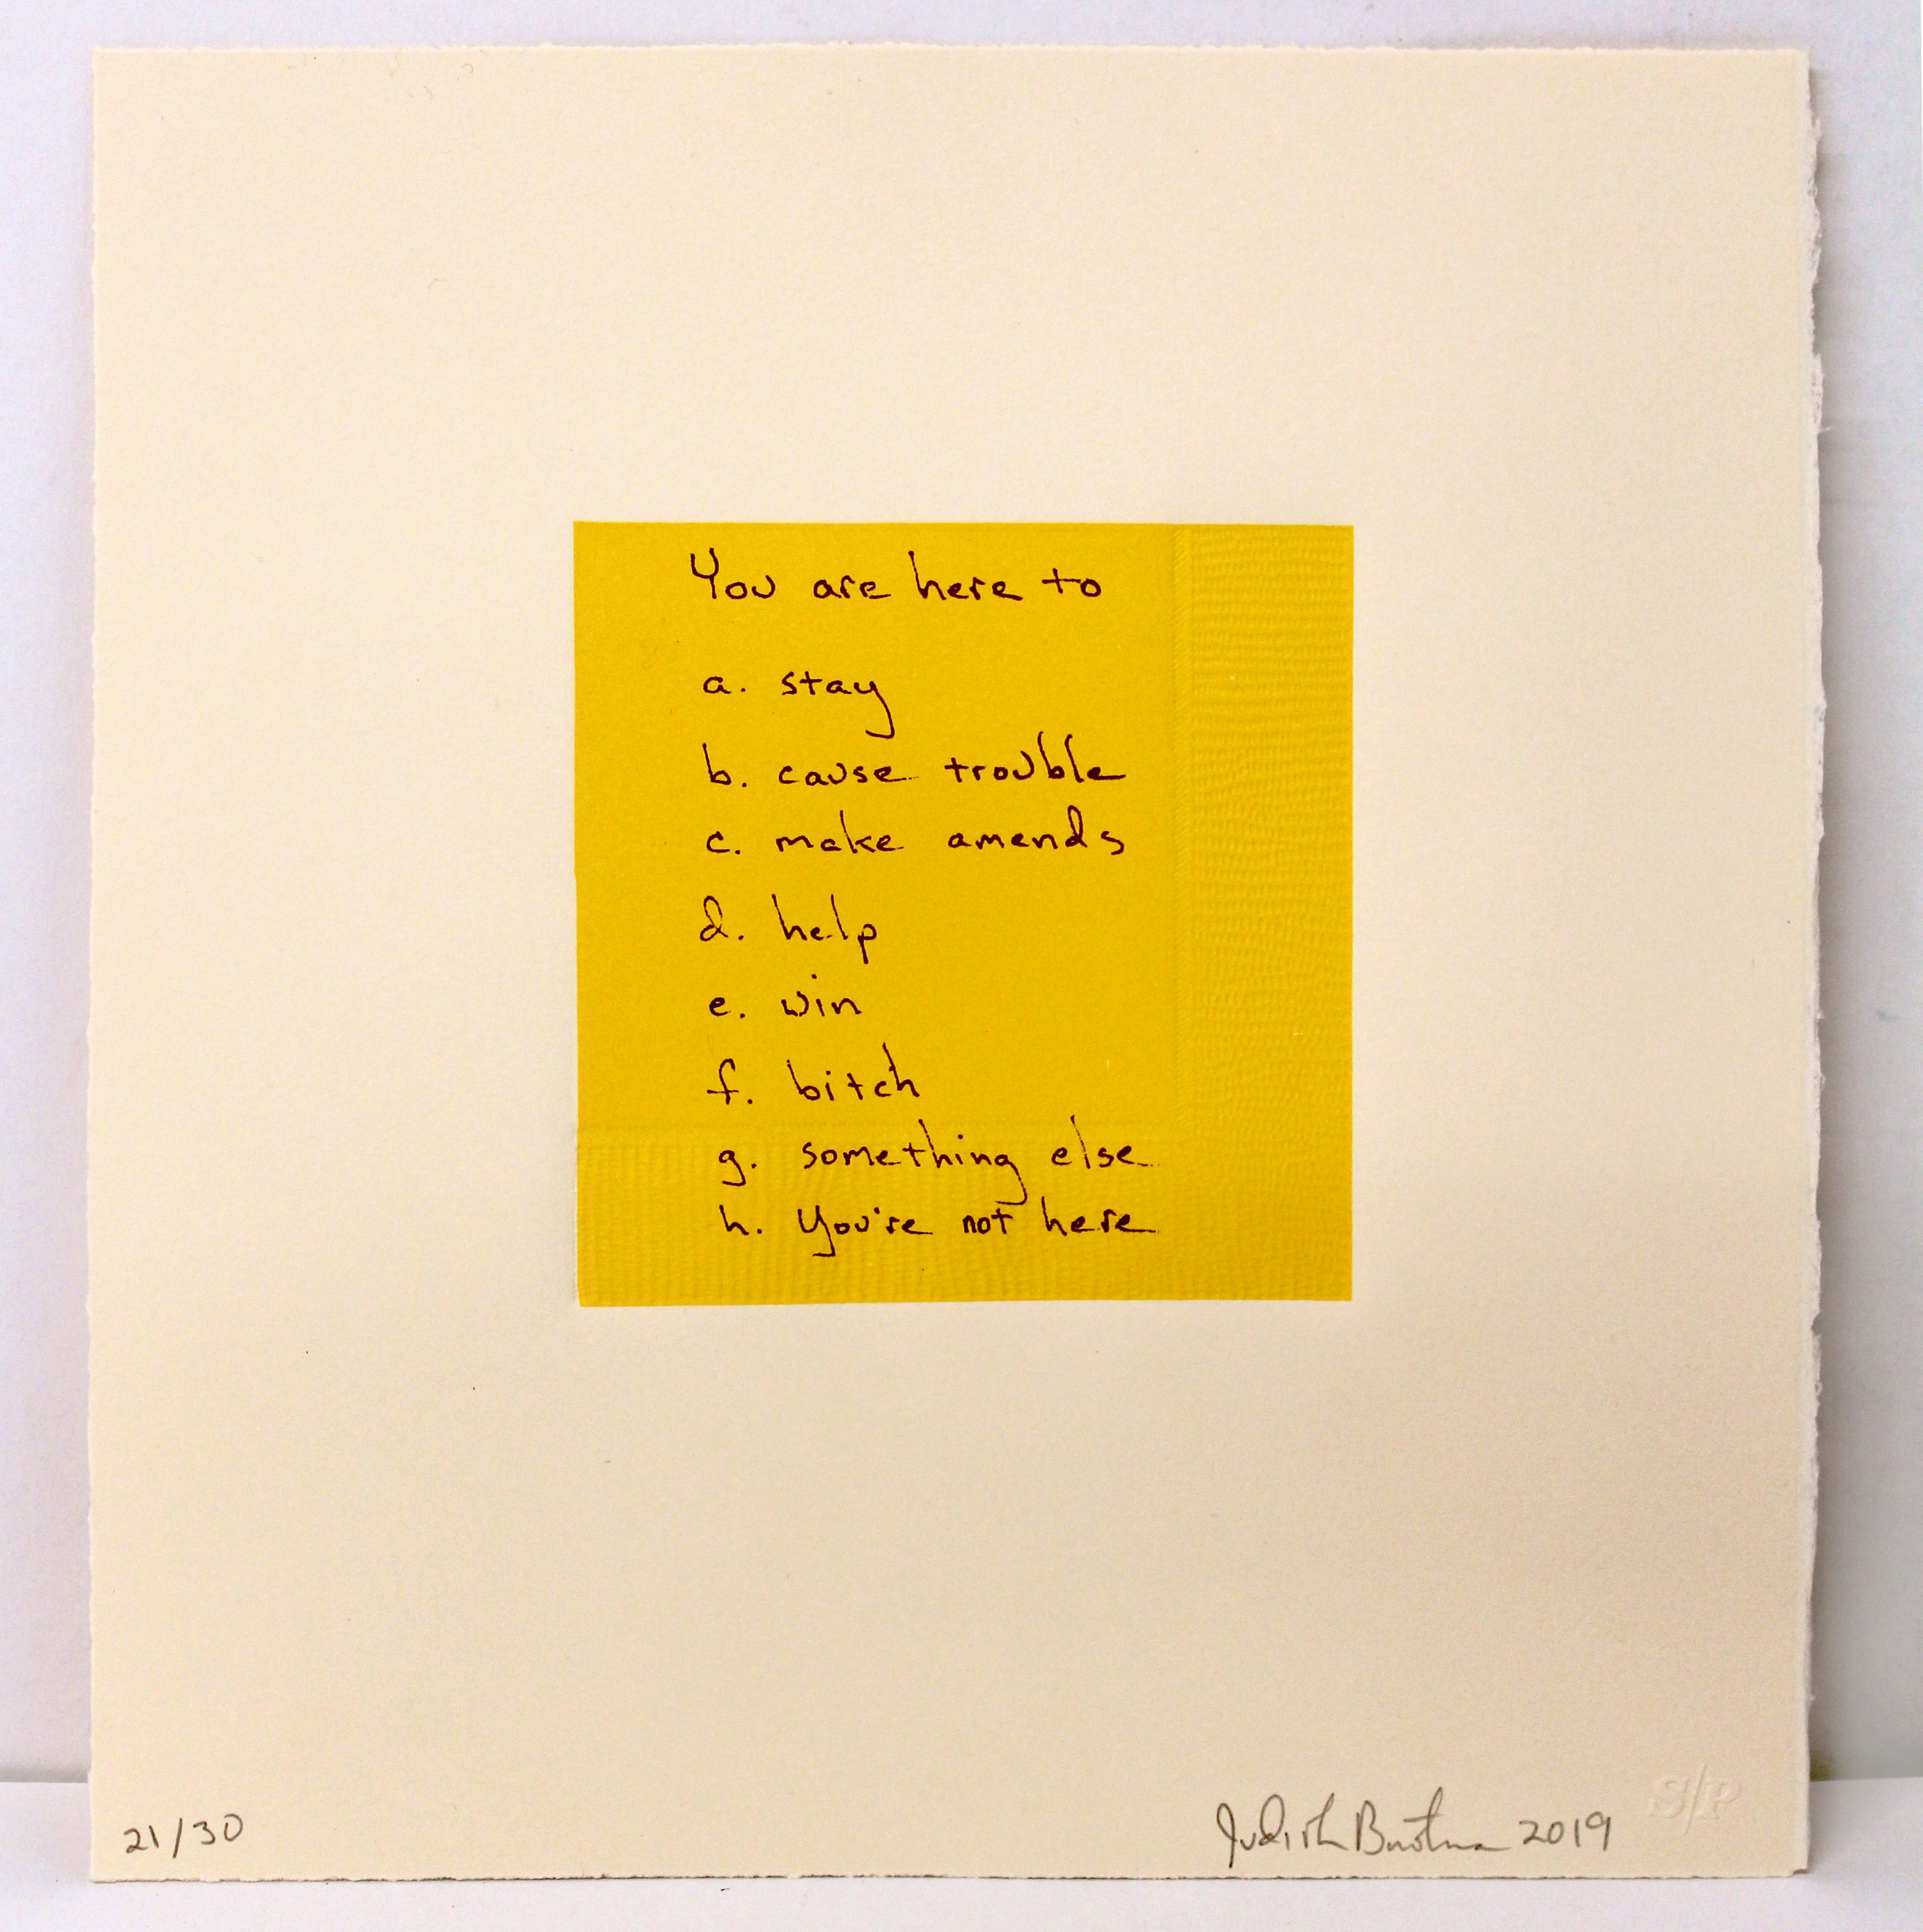 You are here to
a. stay
b. cause trouble
c. make amends
d. help
e. win
f. bitch
g. something else
h. You're not here
21/30
Judith 2019
S/P